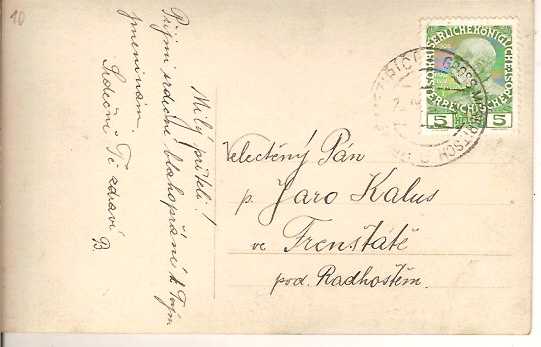 10
Milý příteli!
Přijmi srdečné blahopřání k Tvým
jmeninám.
Srdečně Tě zdraví
B
Veletěný Pán
p. Jaro Kalus
ve Frenštátě
pod. Radhoštěm.
KAISERLICHE KÖNIGLICHE
ÖSTERREICHISCHE
5 5